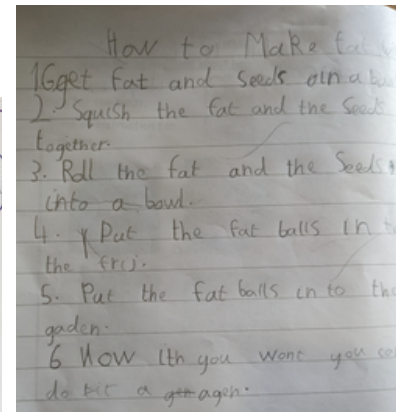 How to Make fat
1 Gget fat and Seeds oin a
2. Squish the fat and the Seeds
together.
3. Roll the fat and the Seeds
into a bowl.
4. Put the fat balls in
the frij.
5. Put the fat balls in to the
gaden.
6 Now ith you wont you
do a agen.